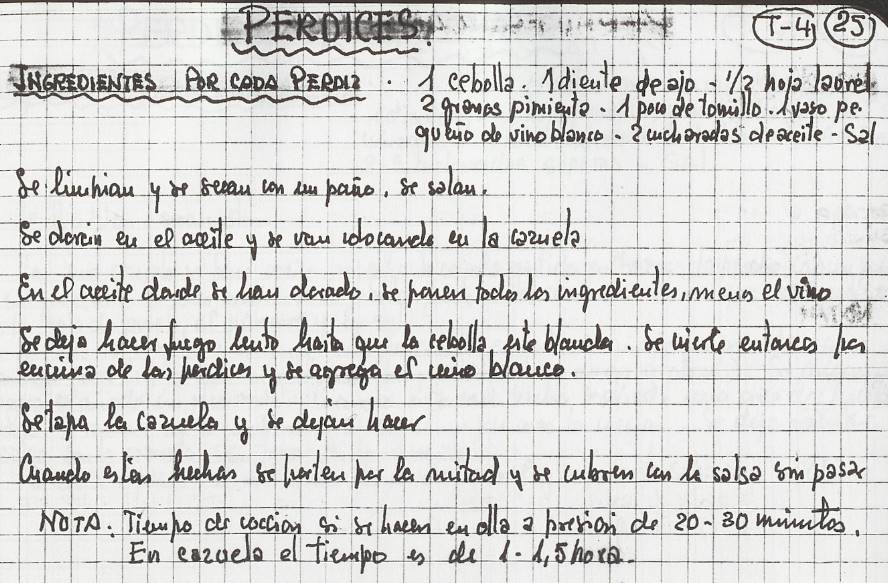 PERDICES.
T-4 25
INGREDIENTES POR CADA PERDIZ. 1 cebolla. 1 diente de ajo - 1/2 hoja laurel
2 granos pimienta. 1 poco de tomillo. 1 vaso pe-
queño de vino blanco - 2 cucharadas de aceite - Sal
Se limpian y se secan con un paño. Se salan.
Se doran en el aceite y se van colocando en la cazuela
En el aceite donde se han dorado, se ponen todos los ingredientes, menos el vino
Se deja hacer fuego lento hasta que la cebolla este blanda. Se vierte entonces por
encima de las perdices y se agrega el vino blanco.
Se tapa la cazuela y se dejan hacer
Cuando estan hechas se parten por la mitad y se cubren con la salsa sin pasar
NOTA. Tiempo de coccion si se hacen en olla a presion de 20-30 minutos.
En cazuela el tiempo es de 1-1,5 hora.